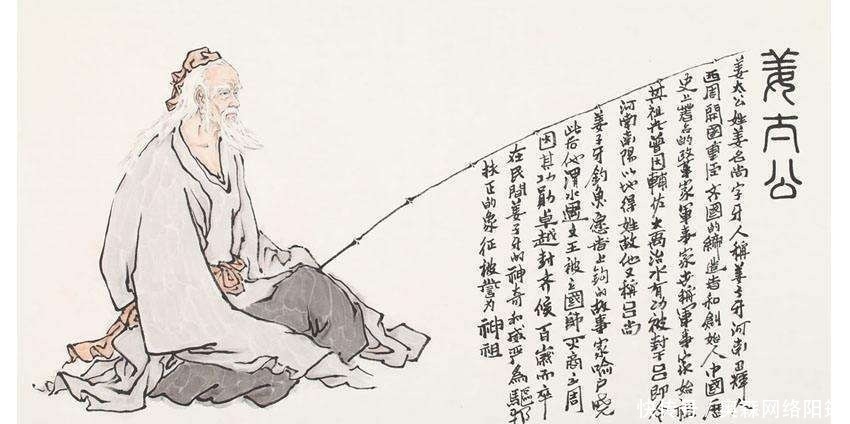 姜太公
姜太公姓姜名尚字牙人称姜子牙河南卫辉人
西周開國重臣齐國的締造者和創始人中國历
史上著名的政事家軍事家世稱軍事家始祖
其祖先曾因輔佐大禹治水有功被封于吕即今
河南南陽以地得姓故他又稱吕尚
姜子牙釣魚愿者上鈎的故事家喻户晓
此后他渭水遇文王被立國師灭商立周
因其功勛卓越封齐侯百歲而卒
在民間姜子牙的神奇和威严為驅邪
扶正的象征被誉为神祖
快传号 森网络阳